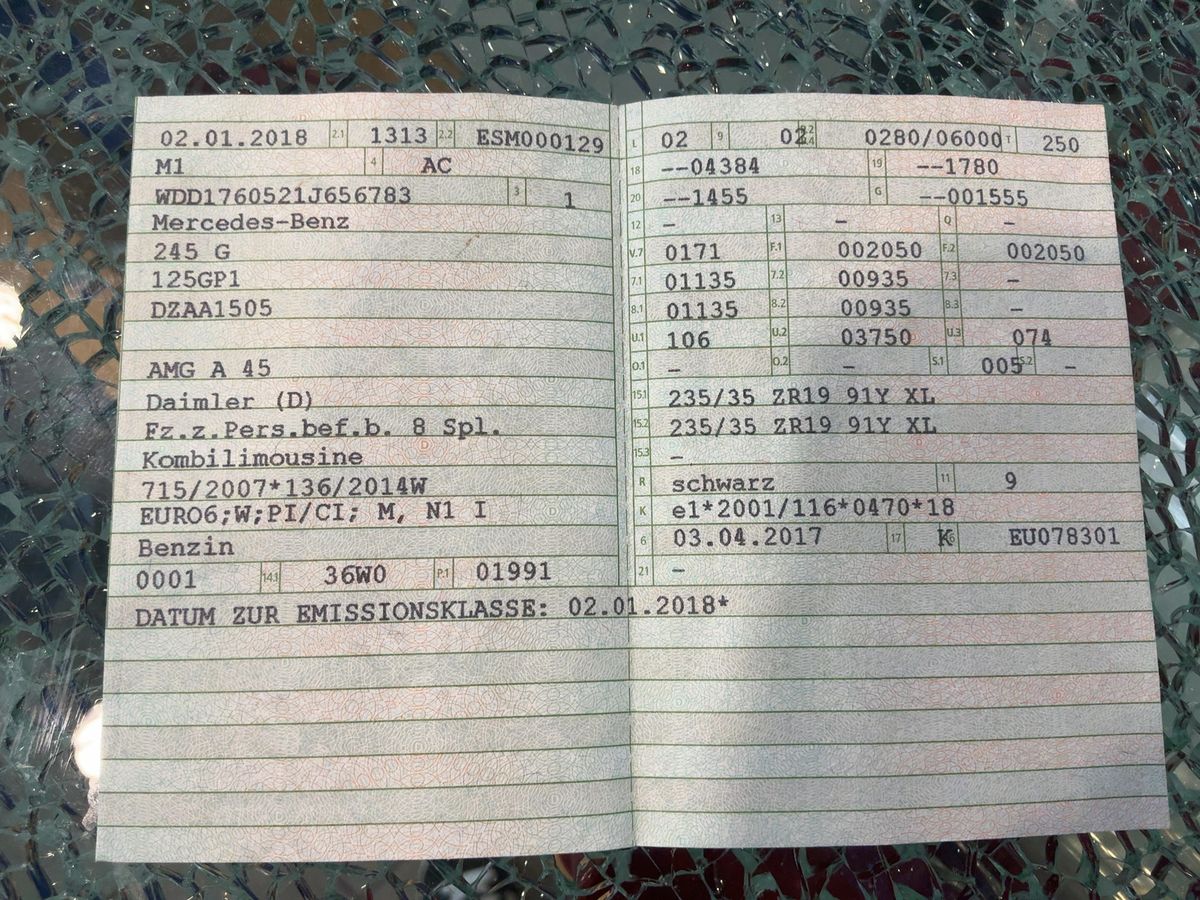 02.01.2018 2.1 1313 2.2 ESM000129
M1 4 AC
WDD1760521J656783 3 1
Mercedes-Benz
245 G
125GP1
DZAA1505
AMG A 45
Daimler (D)
Fz.z.Pers.bef.b. 8 Spl.
Kombilimousine
715/2007*136/2014W
EURO6;W;PI/CI; M, N1 I
Benzin
0001 14.1 36W0 P.1 01991
L 02 9 02 0280/06000 T 250
18 --04384 19 --1780
20 --1455 G --001555
12 – 13 – Q –
V.7 0171 F.1 002050 F.2 002050
7.1 01135 7.2 00935 7.3 –
8.1 01135 8.2 00935 8.3 –
U.1 106 U.2 03750 U.3 074
O.1 – O.2 – S.1 005 S.2 –
15.1 235/35 ZR19 91Y XL
15.2 235/35 ZR19 91Y XL
15.3 –
R schwarz 11 9
K e1*2001/116*0470*18
6 03.04.2017 17 K 16 EU078301
21 –
DATUM ZUR EMISSIONSKLASSE: 02.01.2018*